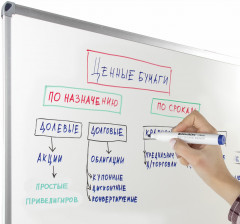 ЦЕННЫЕ БУМАГИ
ПО НАЗНАЧЕНИЮ
ПО СРОКАМ
ДОЛЕВЫЕ
ДОЛГОВЫЕ
АКЦИИ
ОБЛИГАЦИИ
ПРОСТЫЕ
ПРИВЕЛИГИРОВ
КУПОННЫЕ
ДИСКОНТНЫЕ
КОНВЕРТИРУЕМЫЕ